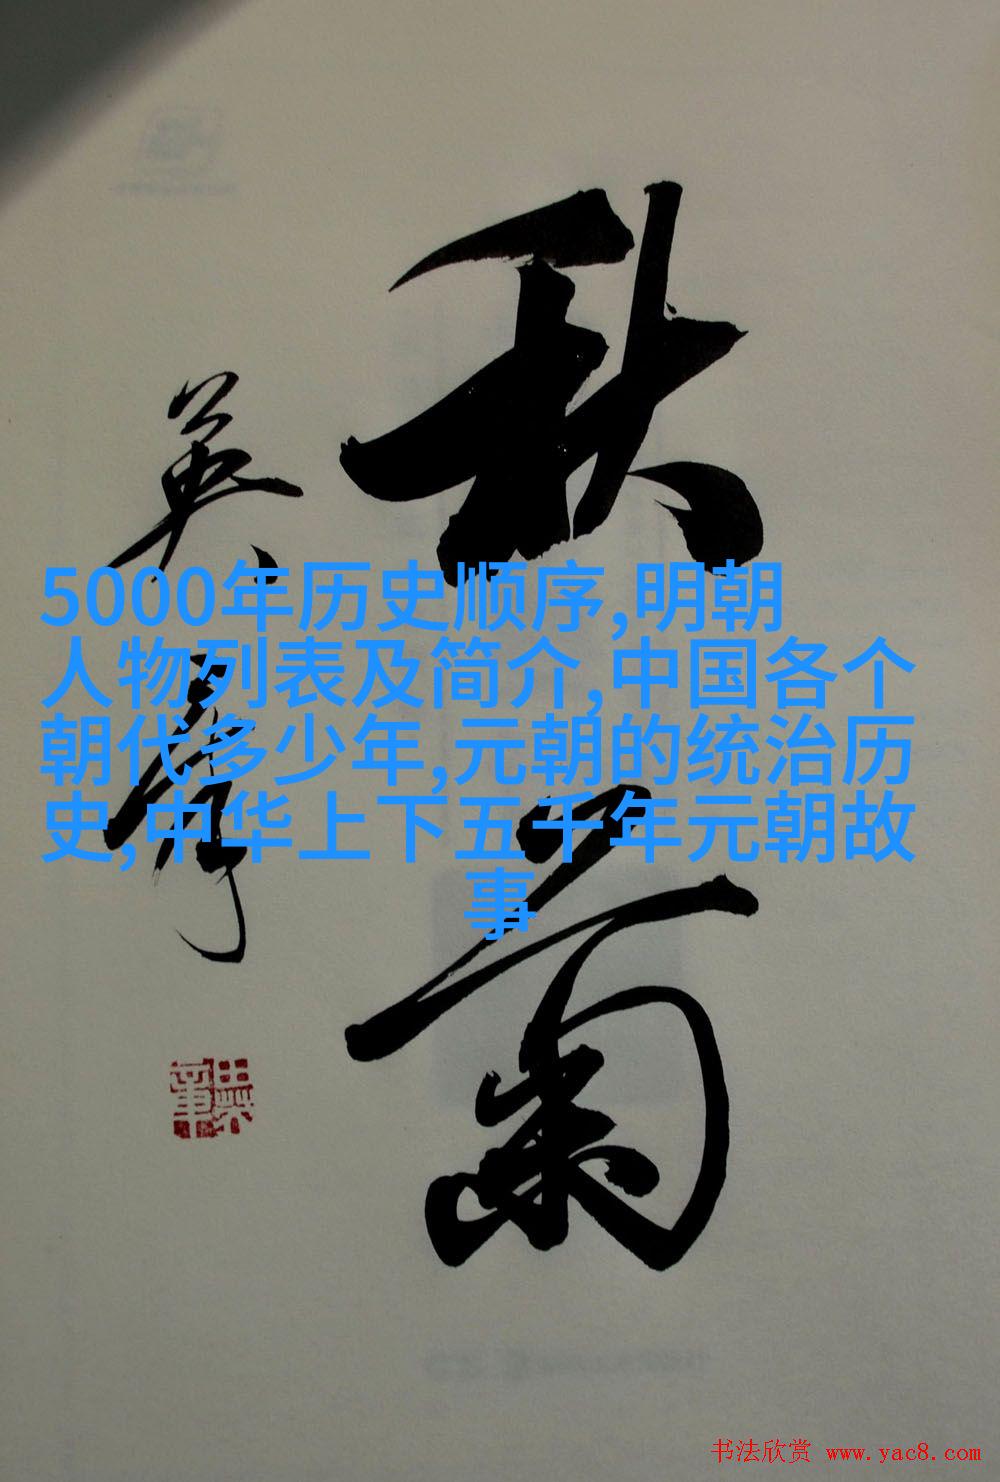 秋菊
5000年历史顺序,明朝
人物列表及简介,中国各个
朝代多少年,元朝的统治历
史,中华上下五千年元朝故
事
书法欣赏 www.yac8.com